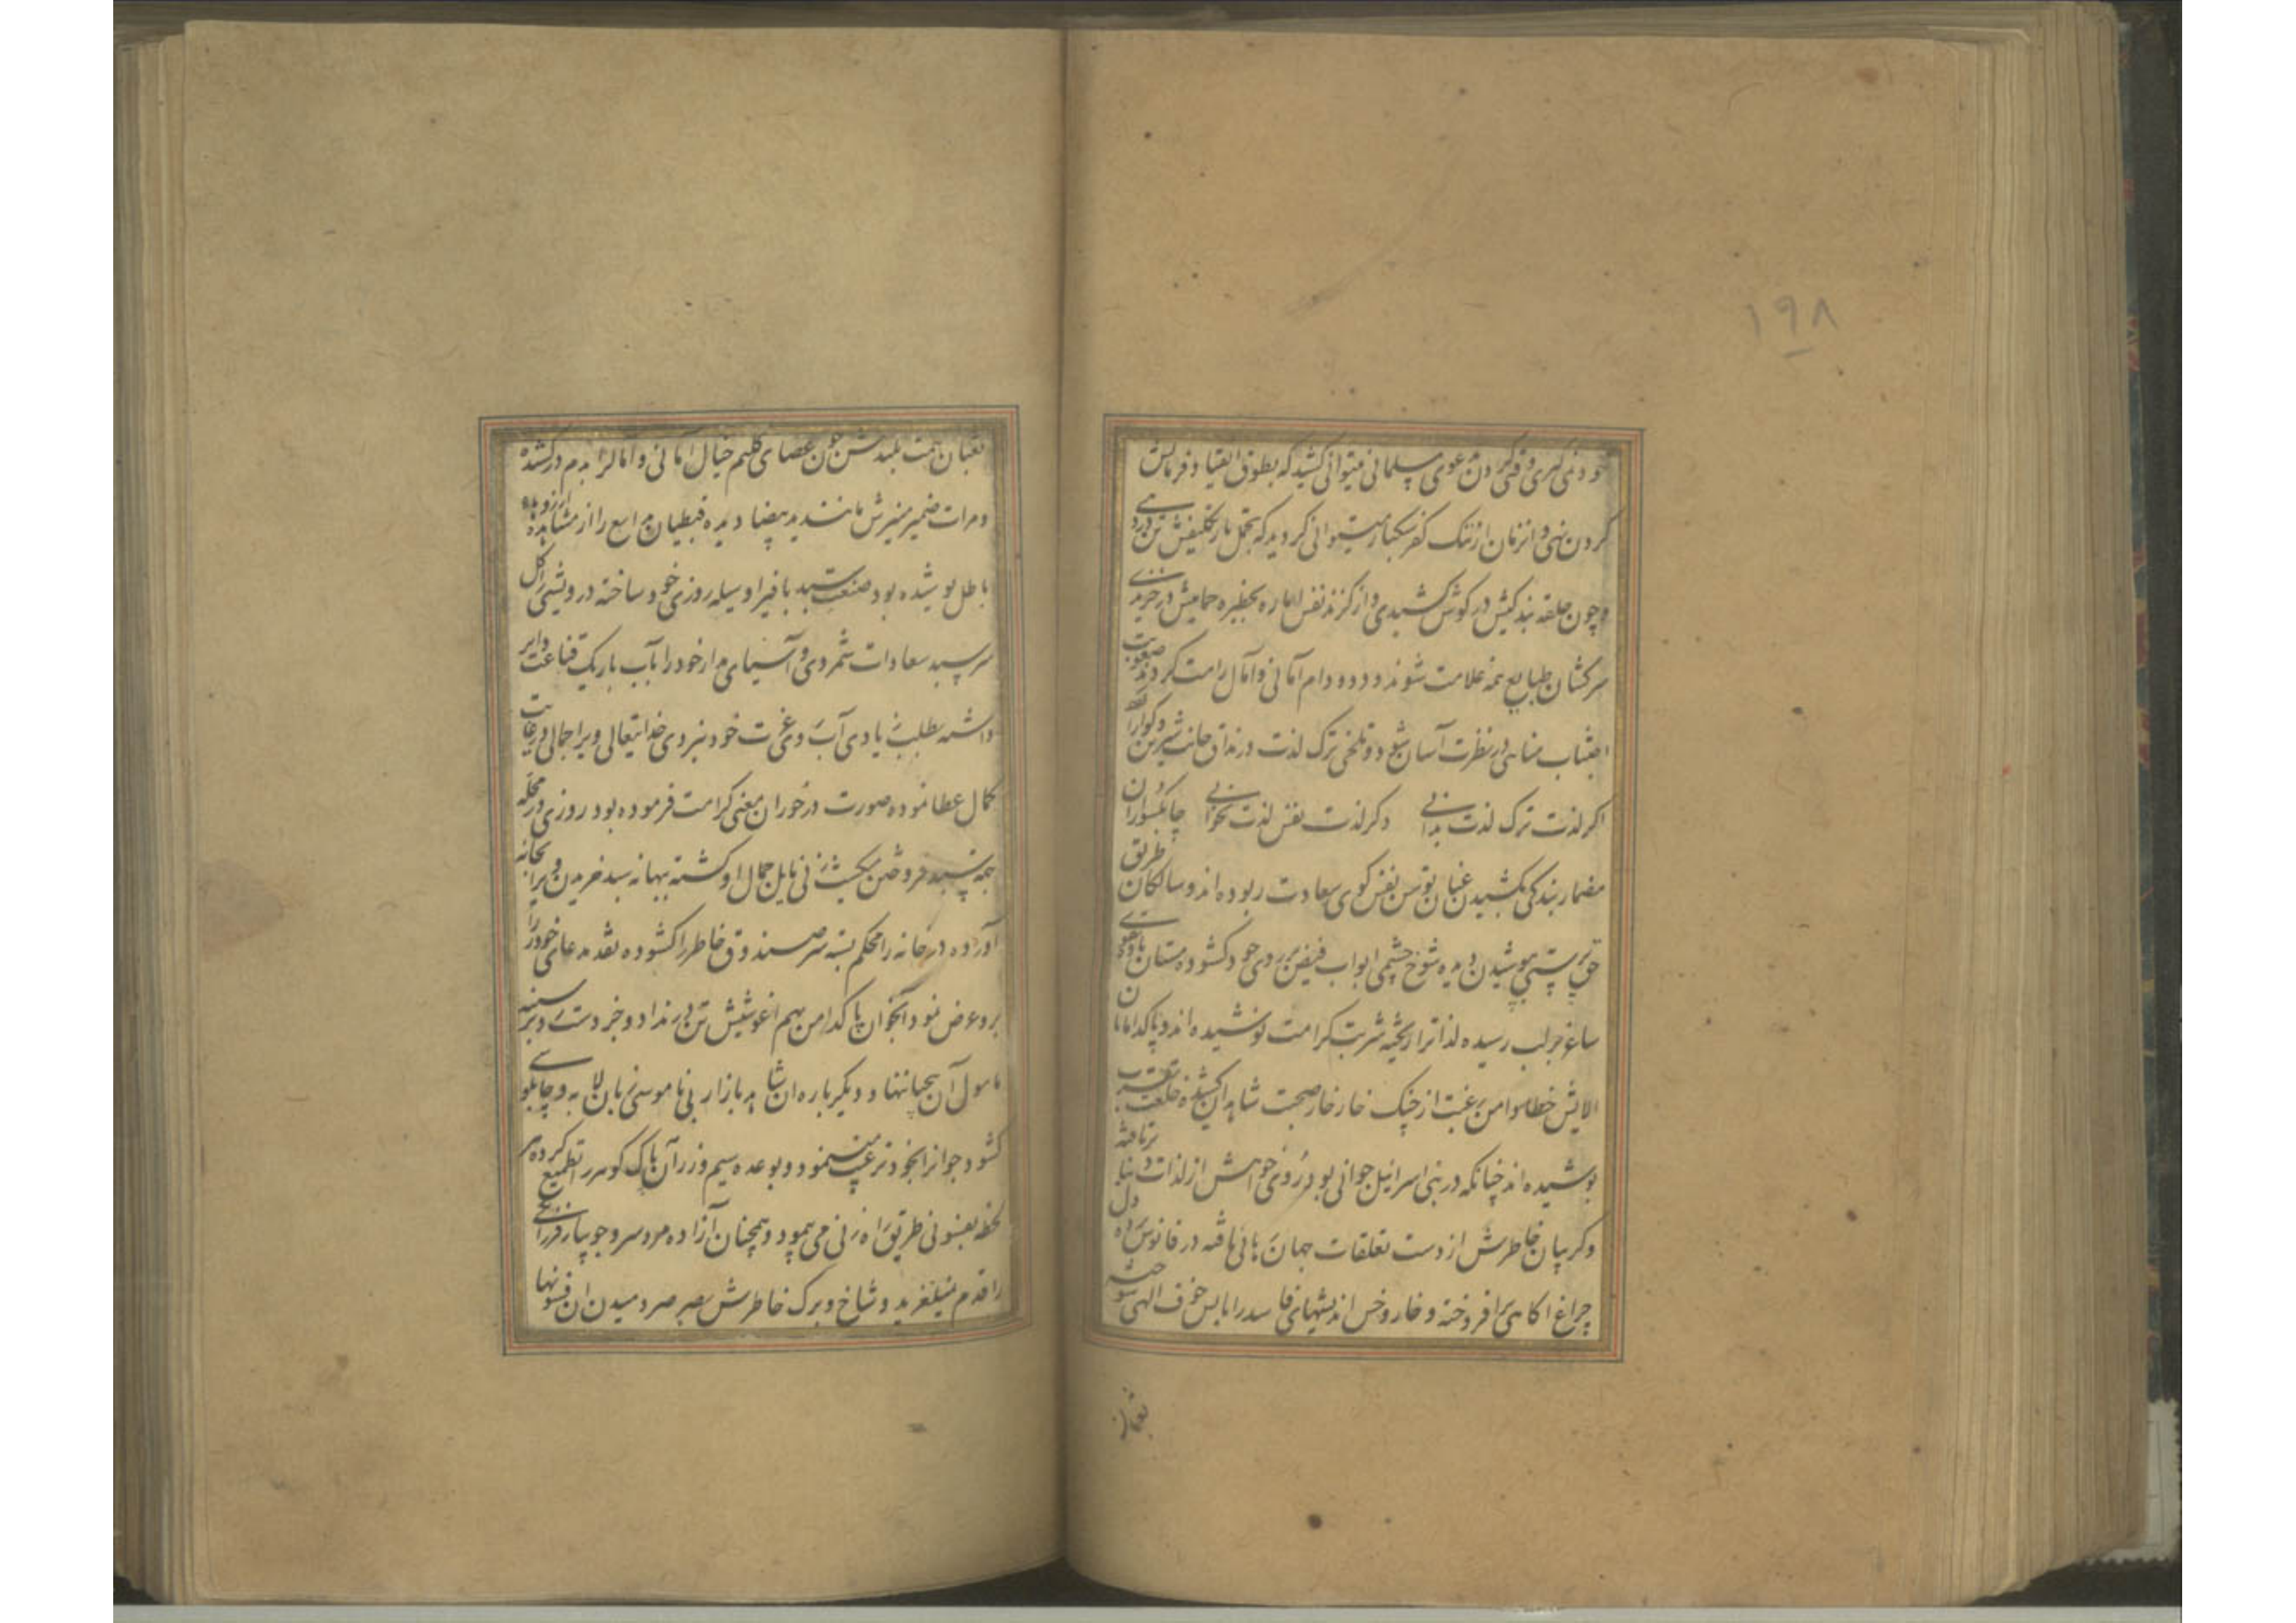 ۱۹۸
خود نمی‌گیری و وقتی گردن دعوی مسلمانی میتوانی کشید که بطوق انقیاد فرمانش
گردن نهی و انزمان از ننک کفر سبکبار میتوانی کردید که بتحمل بار تکلیفش تن در دهی
و چون حلقه بندکیش در کوش کشیدی و از کزند نفس اماره بحظیره حمایتش در خزیدی
سرکشان طبایع همه غلامت شوند و دد و دام امانی و آمال رامت کردند صعوبت
اجتناب مناهی در نظرت آسان شود و تلخی ترک لذت در مذاق جانت شیرین و کوارا
اکر لذت ترک لذت بدانی دکر لذت نفس لذت نخوانی چابکسواران
مضمار بندکی بکشیدن عنان توسن نفس کوی سعادت ربوده‌اند و سالکان طریق
حق پرستی بپوشیدن دیده شوخ چشمی ابواب فیض بر روی خود کشوده مستان باده
ساغر بر لب رسیده لذات را ریخته شربت کرامت نوشیده‌اند و پاکدامانان
الایش خطا دامن رغبت از چنک خار خار صحبت شاهدان کشیده خلعت
پوشیده‌اند چنانکه در بنی اسرائیل جوانی بود روی خواهش از لذات دنیا برتافته
و کریبان خاطرش از دست تعلقات جهان رهائی یافته در فانوس دل
چراغ اکاهی افروخته و خار و خس اندیشهای فاسد را بابس خوف الهی سوخته
ثعبان
ثعبان همت بلندش چون عصای کلیم خیال امانی و آمال را بدم در کشیده
و مرات ضمیر منیرش مانند ید بیضا دیده قبطیان را از مشاهده ارزوهای
باطل پوشیده بود صنعت سبد بافی را وسیله روزی خود ساخته درویشی را کل
سر سبد سعادات شمردی و آسیای مدار خود را بآب باریک قناعت دایر
داشته بطلب زیادی آب روی عزت خود نبردی خدایتعالی ویرا جمالی در غایت
کمال عطا نموده صورت در خور ان معنی کرامت فرموده بود روزی در محله
بجهة سبد فروختن میکشت زنی مایل جمال او کشته ببهانه سبد خریدن ویرا بخانه
آورده در خانه را محکم بسته سر صندوق خاطر را کشوده نقد مدعای خود را
برو عرض نمود آنجوان پاکدامن بهم اغوشیش تن در نداد و جز دست رد بر سینه
مامول آن بیحیا ننهاد و دیکر باره ان شاهد بازار بی ناموسی زبان لابه و چاپلوسی
کشود جوانرا بخود ترغیب مینمود و بوعده سیم و زر آن پاک کوهر را تطمیع کرده هر
لحظه بفسونی طریق راه زنی می پیمود و همچنان آزاده مرد سرو جویبار فرزانکی
را قدم نمیلغزید و شاخ و برک خاطرش بصرصر دمیدن ان فسونها